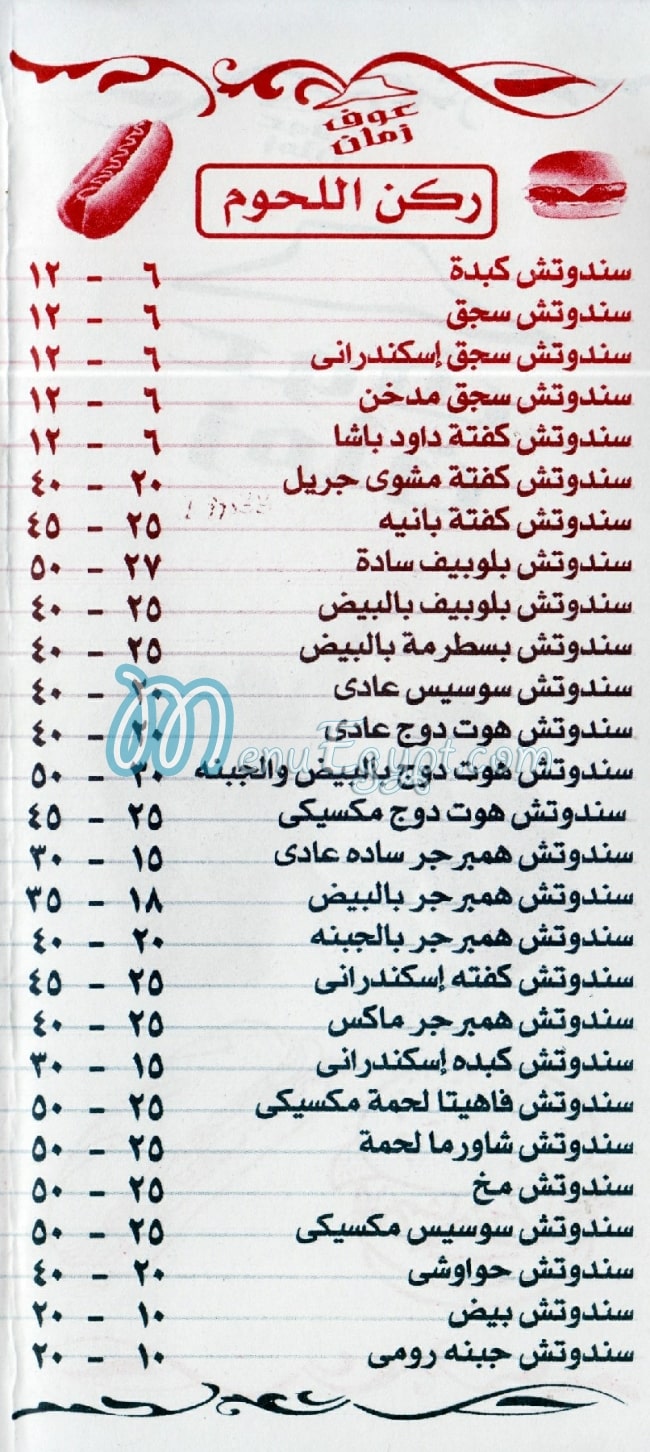 عوف
زمان
ركن اللحوم
سندوتش كبدة ٦ - ١٢
سندوتش سجق ٦ - ١٢
سندوتش سجق إسكندرانى ٦ - ١٢
سندوتش سجق مدخن ٦ - ١٢
سندوتش كفتة داود باشا ٦ - ١٢
سندوتش كفتة مشوى جريل ٢٠ - ٤٠
سندوتش كفتة بانيه ٢٥ - ٤٥
سندوتش بلوبيف سادة ٢٧ - ٥٠
سندوتش بلوبيف بالبيض ٢٥ - ٤٠
سندوتش بسطرمة بالبيض ٢٥ - ٤٠
سندوتش سوسيس عادى ٢٠ - ٤٠
سندوتش هوت دوج عادى ٢٠ - ٤٠
MenuEgypt.com
سندوتش هوت دوج بالبيض والجبنه ٣٠ - ٥٠
سندوتش هوت دوج مكسيكى ٢٥ - ٤٥
سندوتش همبرجر ساده عادى ١٥ - ٣٠
سندوتش همبرجر بالبيض ١٨ - ٣٥
سندوتش همبرجر بالجبنه ٢٠ - ٤٠
سندوتش كفته إسكندرانى ٢٥ - ٤٥
سندوتش همبرجر ماكس ٢٥ - ٤٠
سندوتش كبده إسكندرانى ١٥ - ٣٠
سندوتش فاهيتا لحمة مكسيكى ٢٥ - ٥٠
سندوتش شاورما لحمة ٢٥ - ٥٠
سندوتش مخ ٢٥ - ٥٠
سندوتش سوسيس مكسيكى ٢٥ - ٥٠
سندوتش حواوشى ٢٠ - ٤٠
سندوتش بيض ١٠ - ٢٠
سندوتش جبنه رومى ١٠ - ٢٠